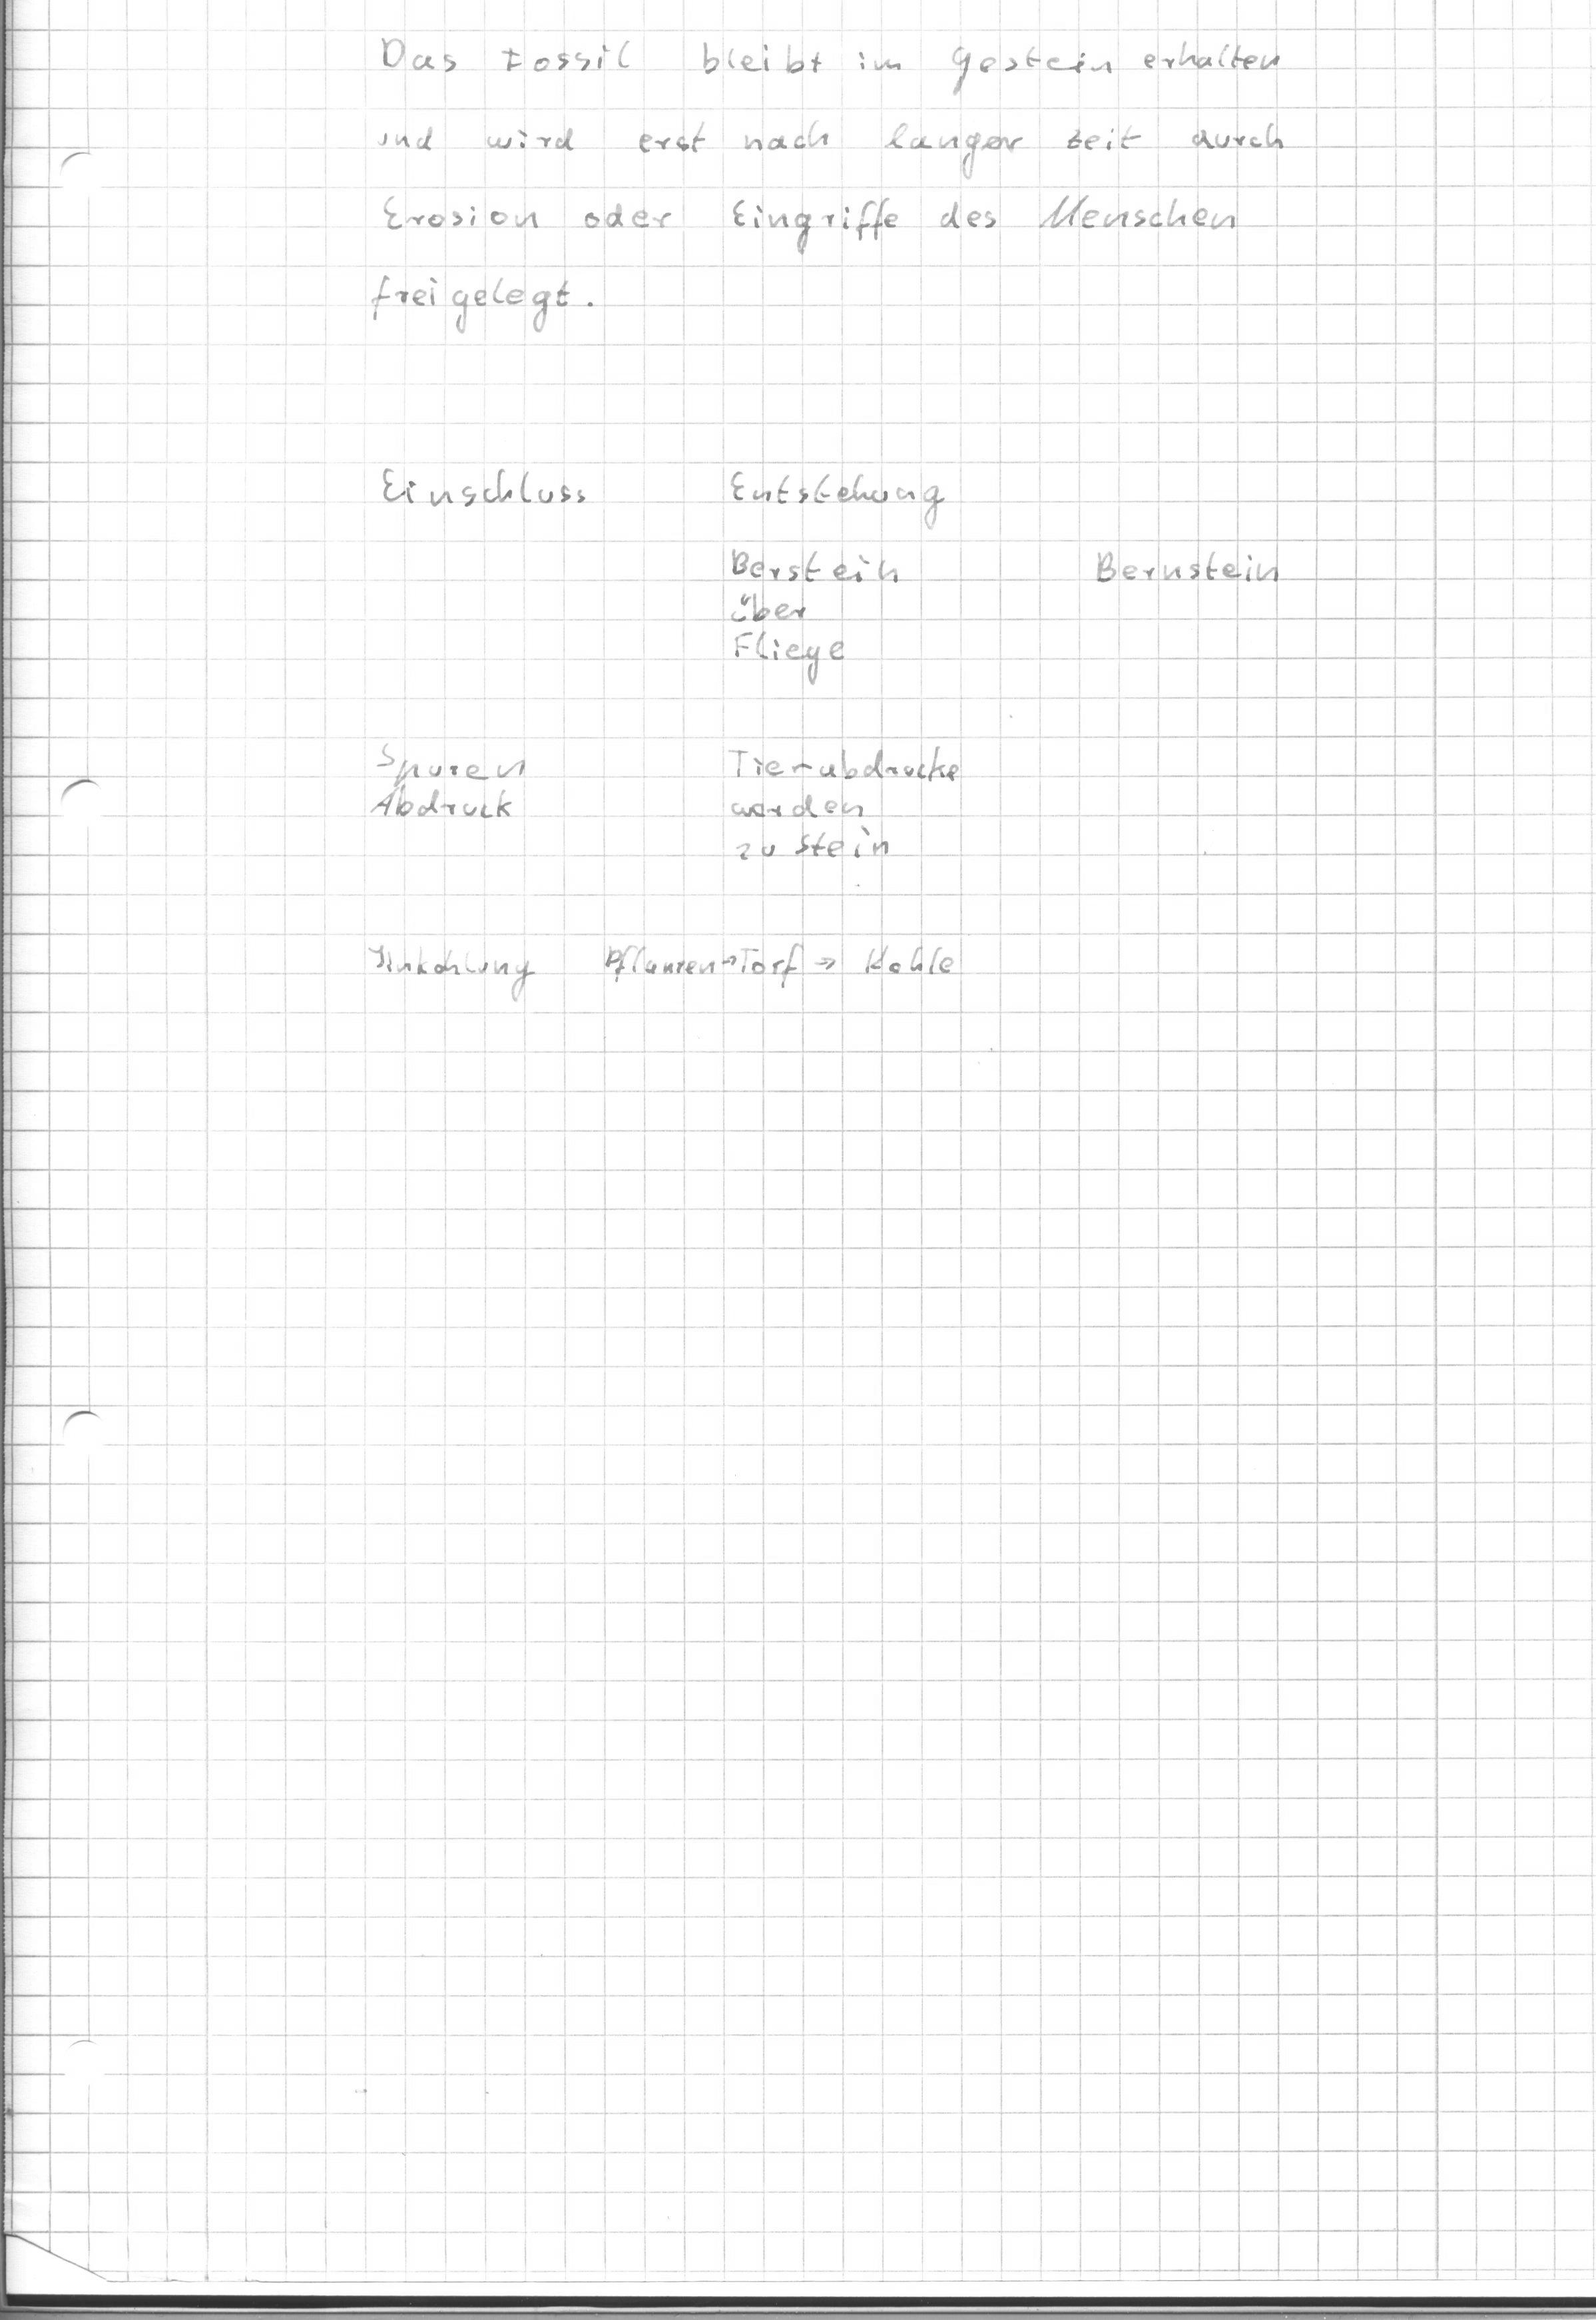 Das Fossil bleibt im Gestein erhalten
und wird erst nach langer Zeit durch
Erosion oder Eingriffe des Menschen
freigelegt.
Einschluss Entstehung
Berstein Bernstein
über
Fliege
Spuren Tierabdrucke
Abdruck werden
zu Stein
Inkohlung Pflanzen→Torf → Kohle